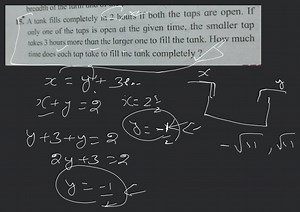 15. A tank fills completely in 2 hours if both the taps are open. If
only one of the taps is open at the given time, the smaller tap
takes 3 hours more than the larger one to fill the tank. How much
time does each tap take to fill the tank completely ?
x = y + 3
x + y = 2
x = 2½
y + 3 + y = 2
y = -1/2
2y + 3 = 2
y = -1/2
x
y
- √11 , √11